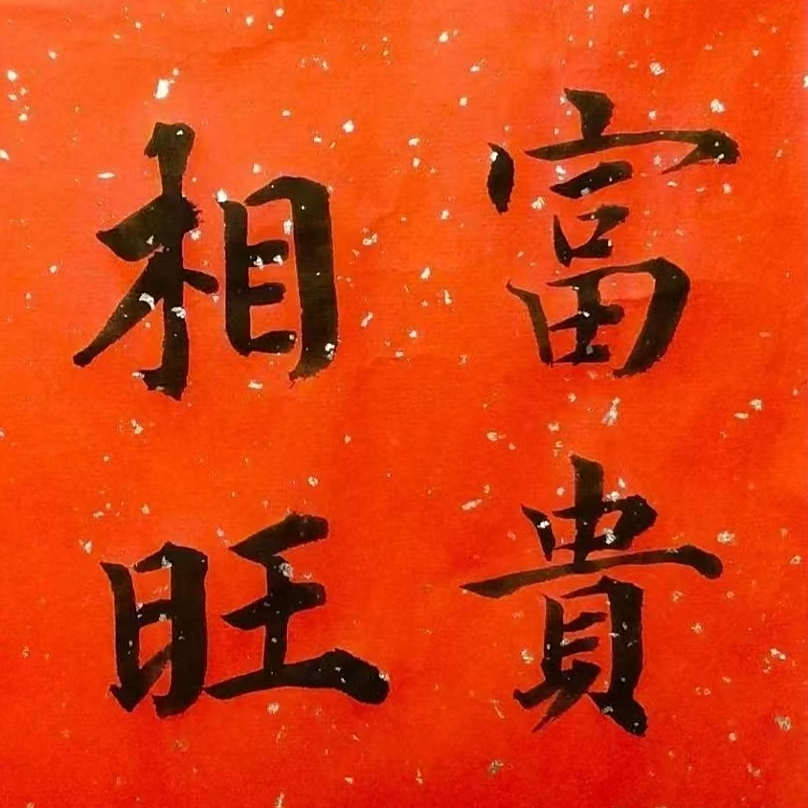 富貴
相旺